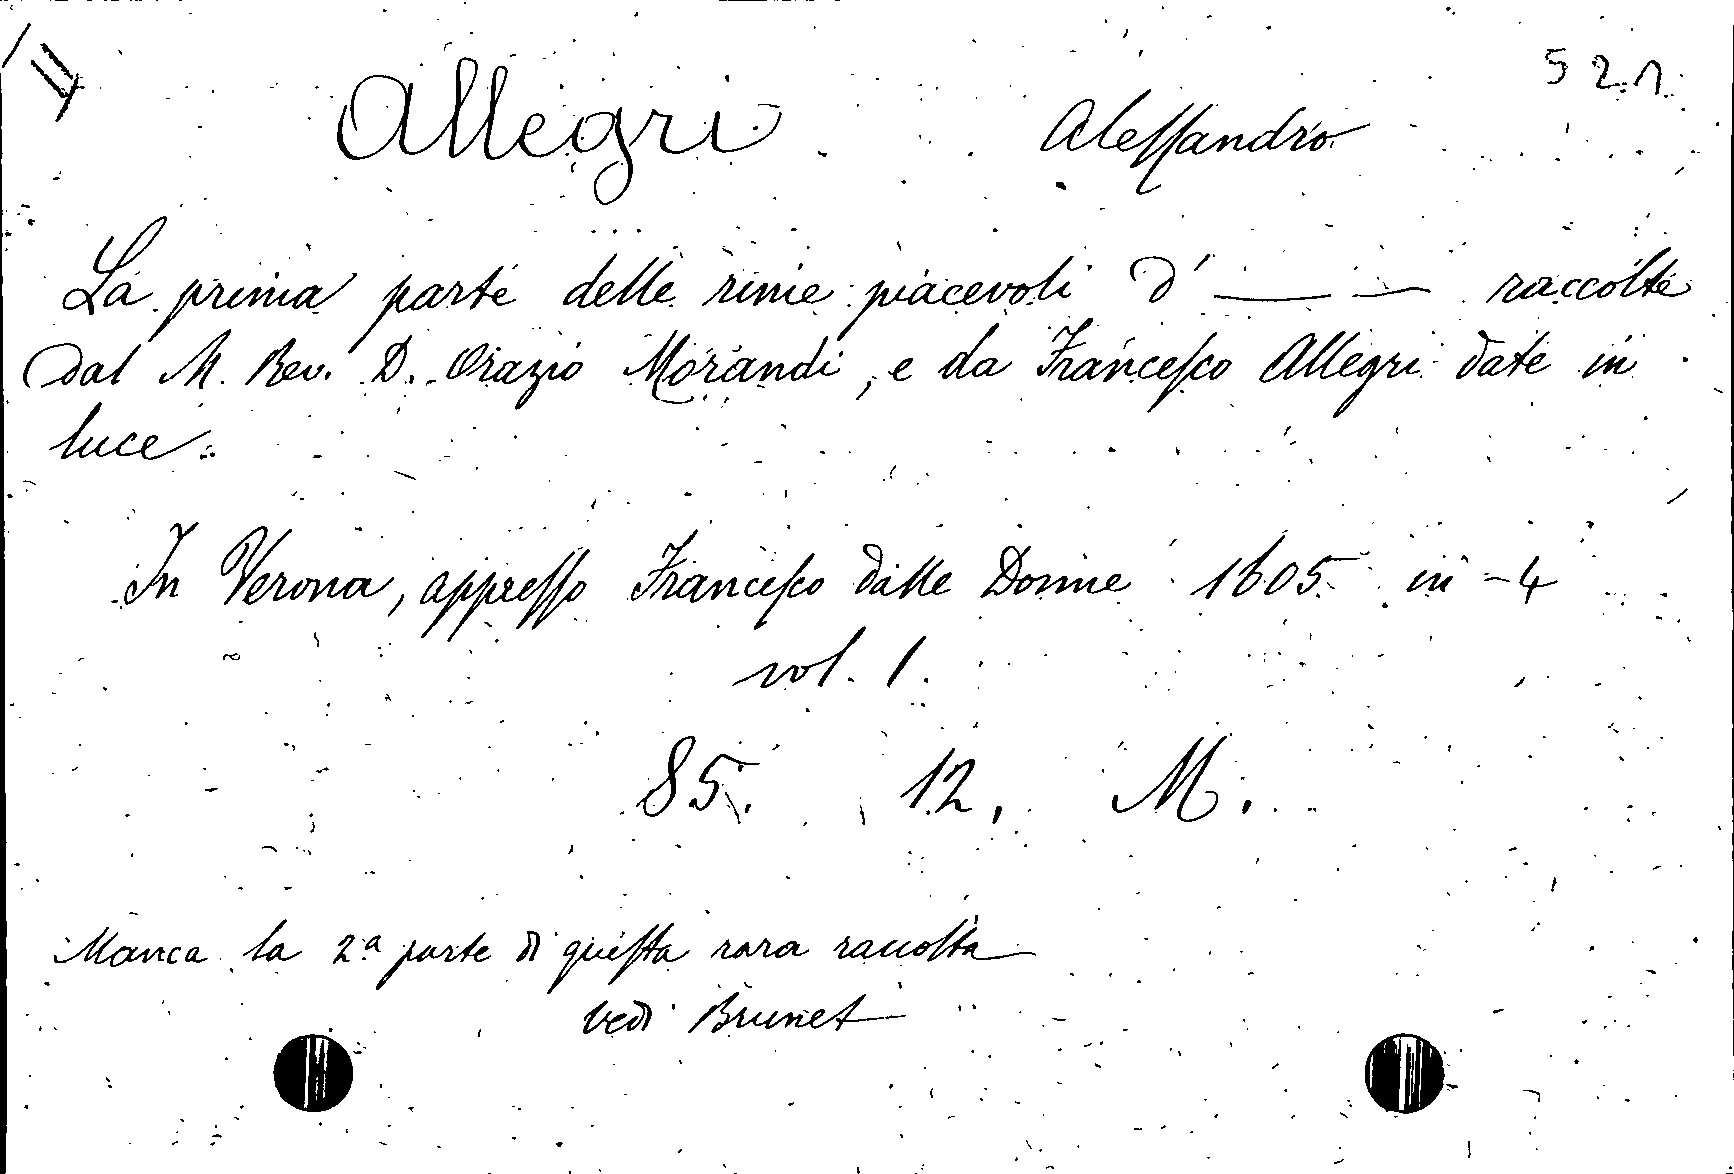 521
Allegri Alessandro
La prima parte delle rime piacevoli d' —— — raccolte
dal M. Rev. D. Orazio Morandi, e da Francesco Allegri date in
luce.
In Verona, appresso Francesco dalle Donne 1605 in-4
vol. 1.
85. 12. M.
Manca la 2ª parte di questa rara raccolta
vedi Brunet